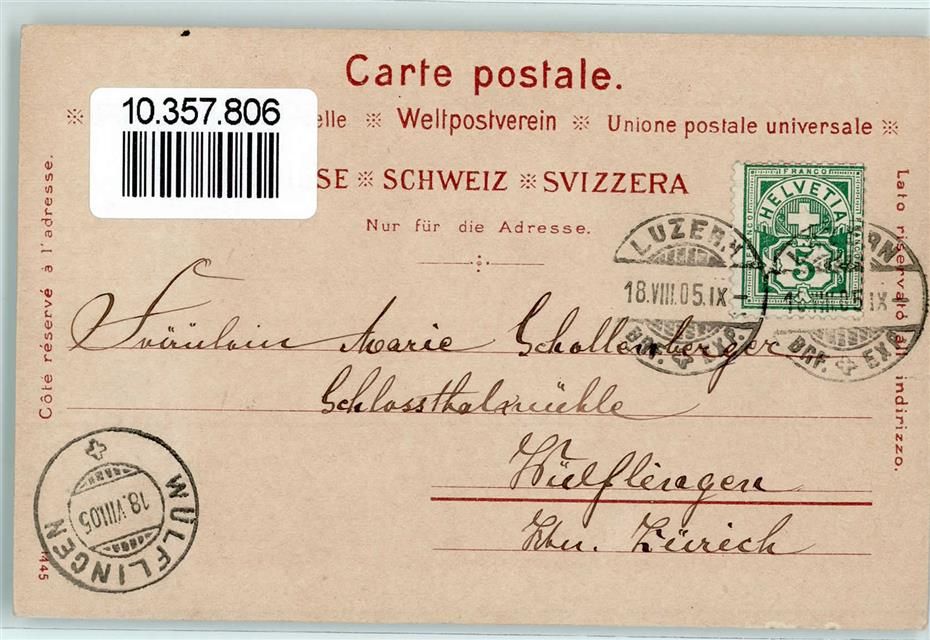 Carte postale.
10.357.806
elle ※ Weltpostverein ※ Unione postale universale ※
SE ※ SCHWEIZ ※ SVIZZERA
Nur für die Adresse.
Côté réservé à l'adresse.
Lato riservato all' indirizzo.
FRANCO
HELVETIA
5
LUZERN
18.VIII.05.IX-
BRF. EXP.
LUZERN
18.VIII.05.IX-
BRF. EXP.
Fräulein Marie Schollenberger
Schlossthalmühle
Wülflingen
Ktn. Zürich
WÜLFLINGEN
18.VIII.05
445